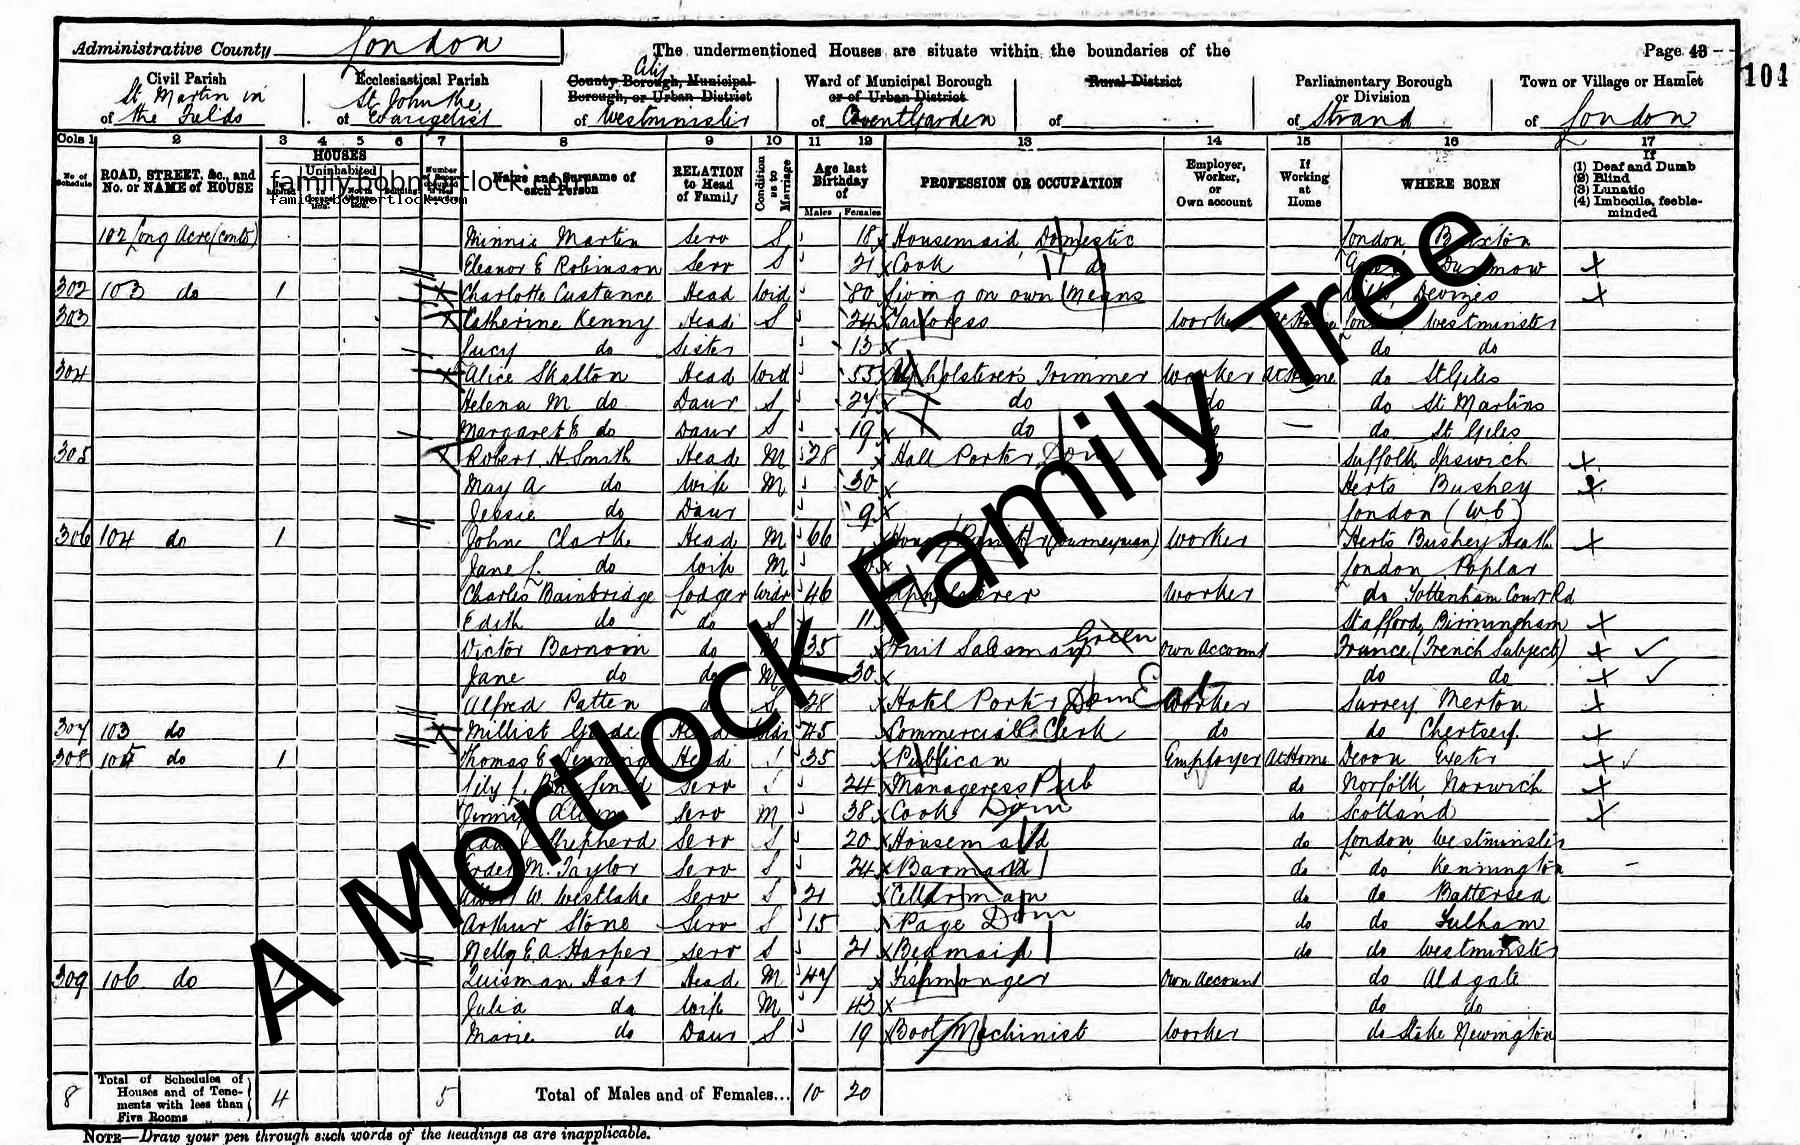 Administrative County London
The undermentioned Houses are situate within the boundaries of the
Page 43
104
Civil Parish
of St. Martin in the Fields
Ecclesiastical Parish
of St John the Evangelist
City
County Borough, Municipal Borough, or Urban District
of Westminster
Ward of Municipal Borough or of Urban District
of Covent Garden
Rural District
of
Parliamentary Borough or Division
of Strand
Town or Village or Hamlet
of London
Cols 1 2 3 4 5 6 7 8 9 10 11 12 13 14 15 16 17
No. of Schedule
ROAD, STREET, &c., and No. or NAME of HOUSE
HOUSES
Uninhabited
family.bobmortlock.com
Name and Surname of each Person
RELATION to Head of Family
Condition as to Marriage
Age last Birthday of
Males Females
PROFESSION OR OCCUPATION
Employer, Worker, or Own account
If Working at Home
WHERE BORN
If
(1) Deaf and Dumb
(2) Blind
(3) Lunatic
(4) Imbecile, feeble-minded
102 Long Acre (contd) Minnie Martin Serv S 18 Housemaid Domestic London
Eleanor E Robinson Serv S 21 Cook do Dunmow
302 103 do 1 Charlotte Custance Head Wid 80 Living on own Means Wilts, Devizes
303 Catherine Kenny Head S 24 Tailoress Worker At Home London Westminster
Lucy do Sister 13 do do
304 Alice Skelton Head Wid 55 Upholsterers Trimmer Worker At Home do St Giles
Helena M do Daur S 27 do do do St Martins
Margaret E do Daur S 19 do do do St Giles
305 Robert H. Smith Head M 28 Hall Porter Dom do Suffolk Ipswich
May A do Wife M 30 Herts Bushey
Jessie do Daur 9 London (W.C)
306 104 do 1 John Clark Head M 66 House Painter (Journeyman) Worker Herts Bushey Heath
Jane L. do Wife M London Poplar
Charles Bainbridge Lodger Widr 46 Upholsterer Worker do Tottenham Court Rd
Edith do do S 11 Stafford, Birmingham
Victor Barnoin do M 35 Fruit Salesman Green Own Account France (French Subject)
Jane do do M 30 do do
Alfred Patten do S 28 Hotel Porter Dom Worker Surrey Merton
307 103 do Millist Garde Head Widr 45 Commercial Clerk do do Chertsey
308 105 do 1 Thomas E Denning Head 35 Publican Employer At Home Devon Exeter
Lily L. Serv 24 Manageress Pub do Norfolk, Norwich
Serv M 38 Cook Dom do Scotland
Shepherd Serv S 20 Housemaid do London, Westminster
M. Taylor Serv S 24 Barmaid do do Kennington
Albert W. Westlake Serv S 21 Cellarman do do Battersea
Arthur Stone Serv S 15 Page Dom do do Fulham
Nelly E.A. Harper Serv S 21 Bedmaid do do Westminster
309 106 do 1 Quisman Hart Head M 47 Fishmonger Own Account do Aldgate
Julia do Wife M 43 do do
Marie do Daur S 19 Boot Machinist Worker do Stoke Newington
8 Total of Schedules of Houses and of Tenements with less than Five Rooms 4 5 Total of Males and of Females... 10 20
NOTE—Draw your pen through such words of the headings as are inapplicable.
A Mortlock Family Tree